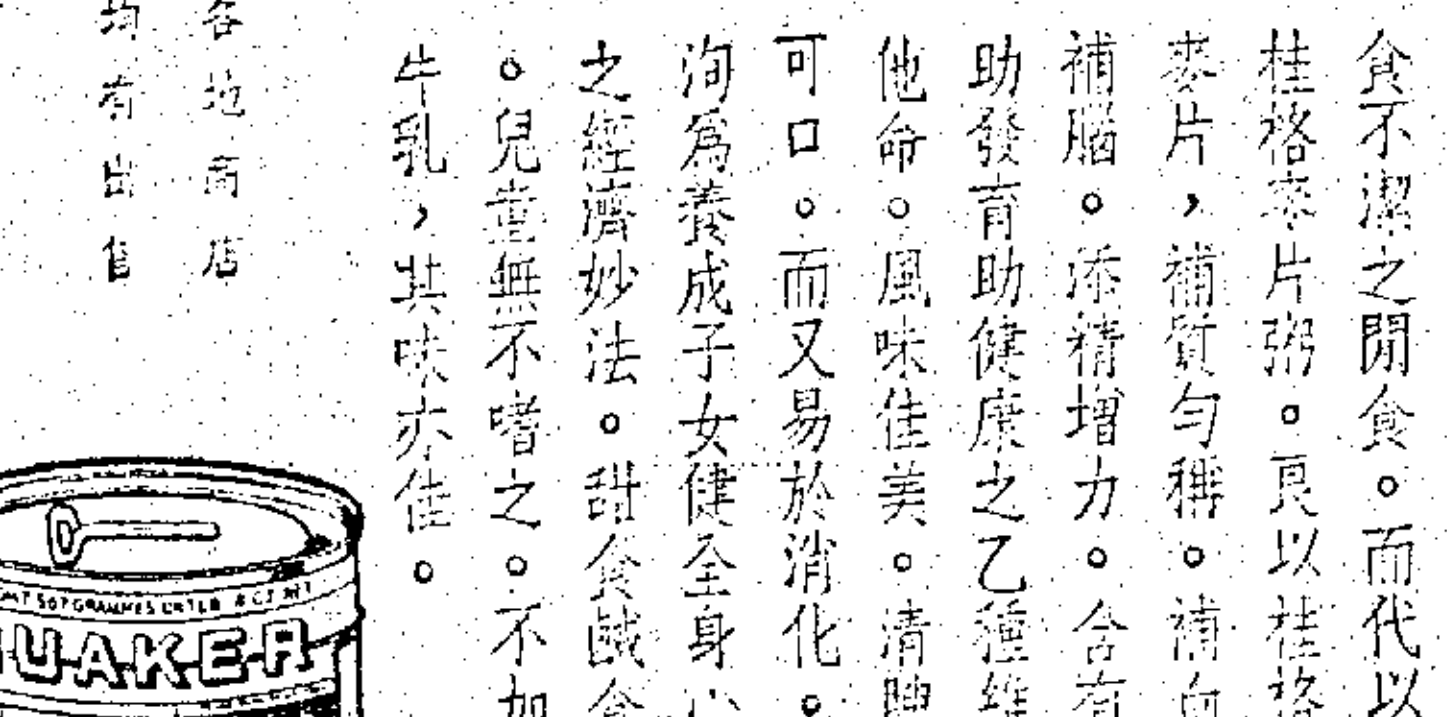 食不潔之閒食。而代以
桂格麥片粥。良以桂格
麥片，補質勻稱。補血
補腦。添精增力。含有
助發育助健康之乙種維
他命。風味佳美。清脾
可口。而又易於消化。
洵為養成子女健全身心
之經濟妙法。甜食鹹食
。兒童無不嗜之。不加
牛乳，其味亦佳。
各地商店
均有出售
QUAKER